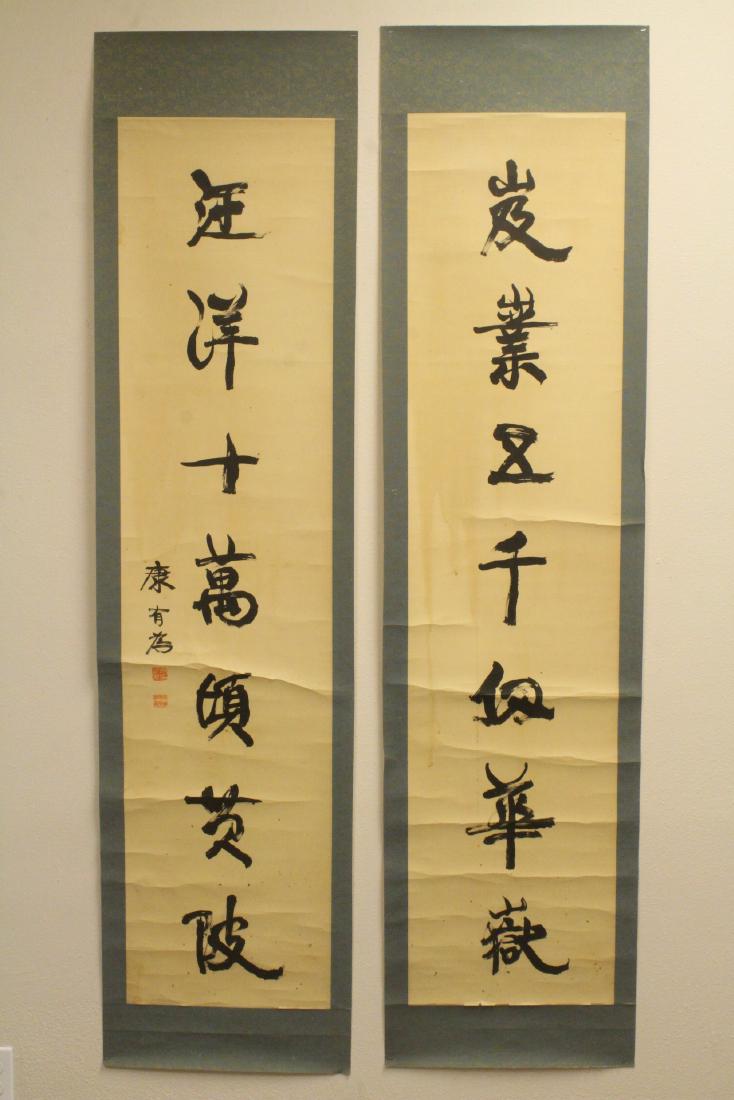 岌業五千仞華嶽
汪洋十萬頃黄陂
康有為